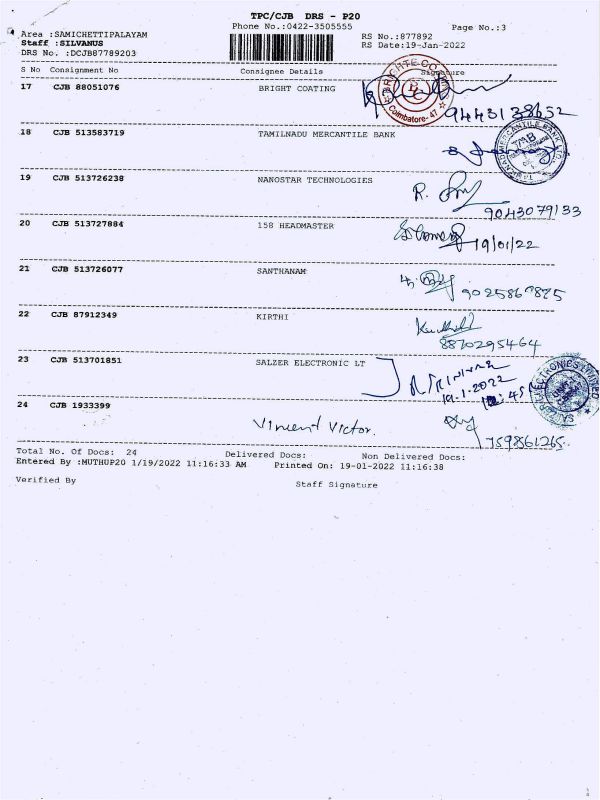 TPC/CJB DRS - P20
Phone No.:0422-3505555
Page No.:3
Area :SAMICHETTIPALAYAM
Staff :SILVANUS
DRS No. :DCJB87789203
RS No.:877892
RS Date:19-Jan-2022
S No Consignment No Consignee Details Signature
17 CJB 88051076 BRIGHT COATING
Coimbatore - 47
18 CJB 513583719 TAMILNADU MERCANTILE BANK
19 CJB 513726238 NANOSTAR TECHNOLOGIES
9043079133
20 CJB 513727884 158 HEADMASTER
19/01/22
21 CJB 513726077 SANTHANAM
22 CJB 87912349 KIRTHI
8870295464
23 CJB 513701851 SALZER ELECTRONIC LT
19.1.2022
24 CJB 1933399
Vincent Victor.
7598561265
Total No. Of Docs: 24 Delivered Docs: Non Delivered Docs:
Entered By :MUTHUP20 1/19/2022 11:16:33 AM Printed On: 19-01-2022 11:16:38
Verified By Staff Signature